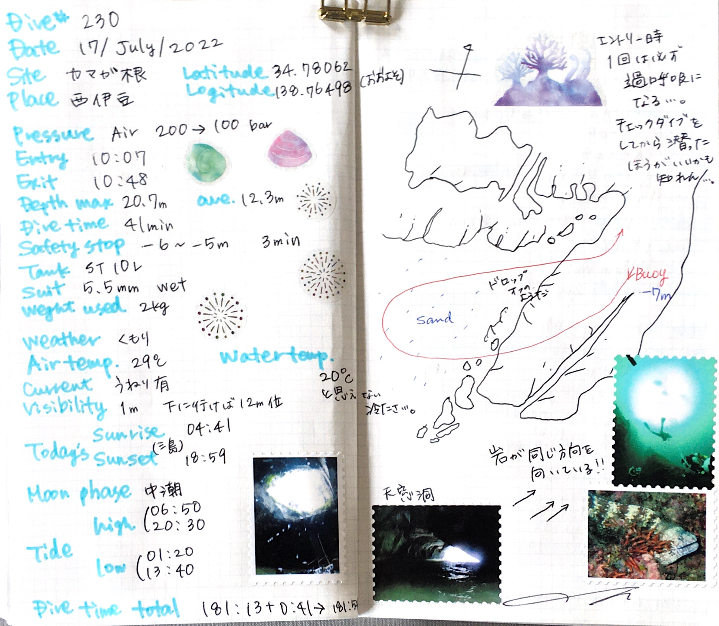 Dive# 230
Date 17/July/2022
Site ヤマガ根
Latitude 34.78062
Place 西伊豆
Logitude 138.76498 (おおよそ)
Pressure Air 200→100 bar
Entry 10:07
Exit 10:48
Depth max 20.7m ave. 12.3m
Dive time 41min
Safety stop -6~-5m 3min
Tank ST 10L
Suit 5.5mm wet
Weght used 2kg
Weather くもり
Air temp. 29℃
Water temp.
20℃
と思えない
冷たさ…。
Current うねり有
Visibility 1m 下に行けば12m位
Today's (三島)
Sunrise 04:41
Sunset 18:59
Moon phase 中潮
Tide
high (06:50
20:30
low (01:20
13:40
Dive time total 181:13+0:41→181:5
エントリー時
1回は必ず
過呼吸に
なる…。
チェックダイブを
してから潜った
ほうがいいかも
知れん…。
ドロップ
Sand
Buoy
-7m
岩が同じ方向を
向いている!!
天窓洞